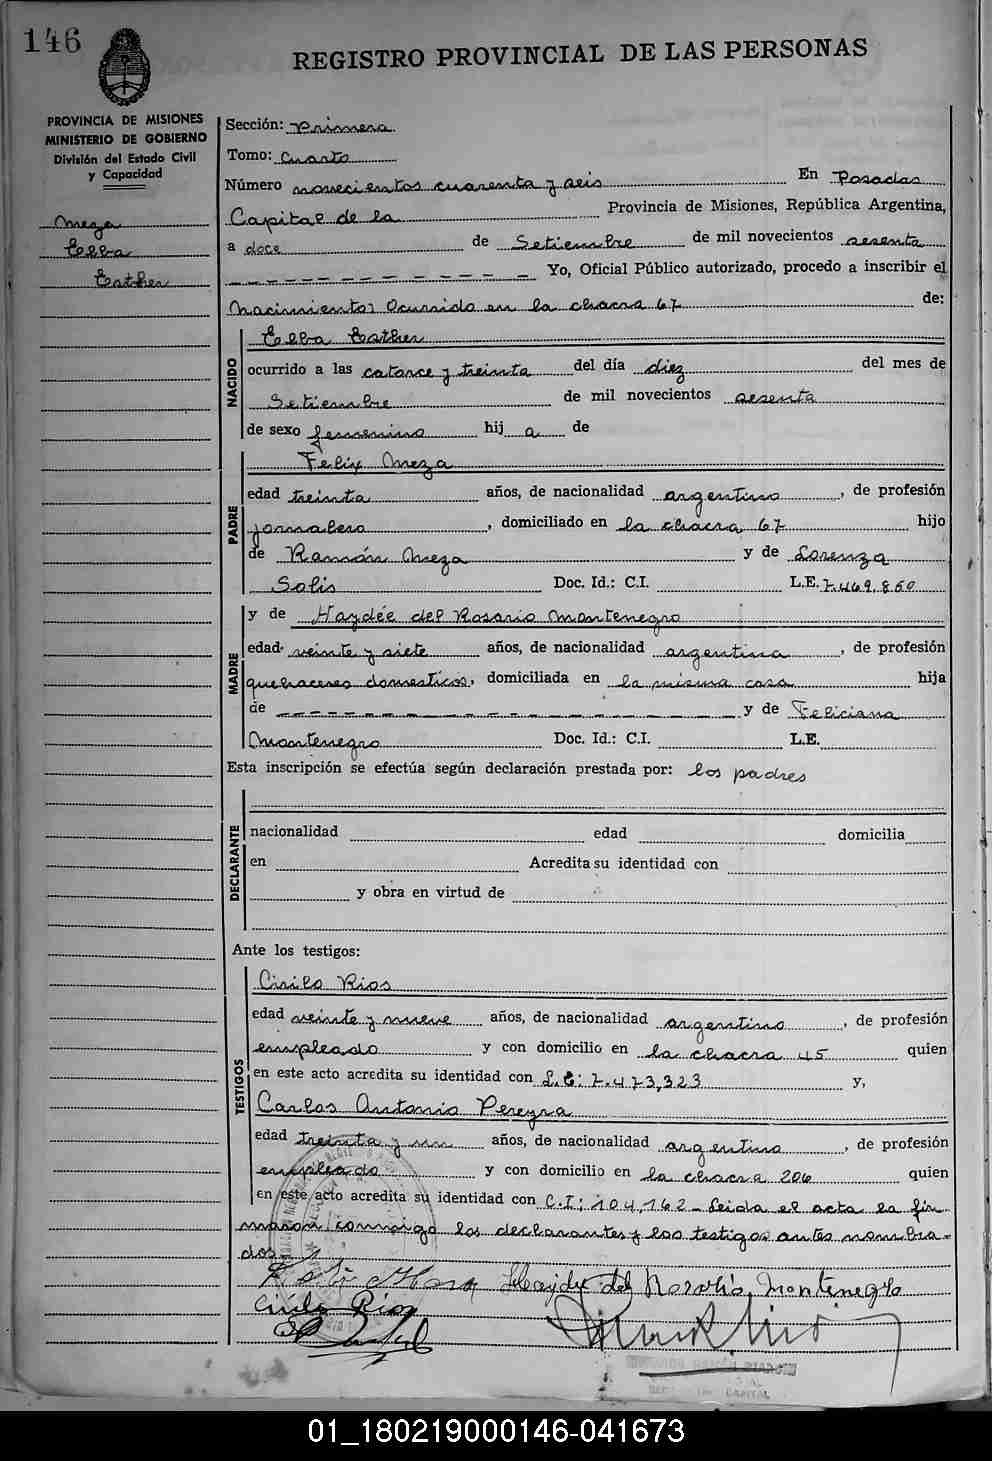 146
REGISTRO PROVINCIAL DE LAS PERSONAS
PROVINCIA DE MISIONES
MINISTERIO DE GOBIERNO
División del Estado Civil
y Capacidad
Meza
Elba
Esther
Sección: Primera
Tomo: Cuarto
Número novecientos cuarenta y seis En Posadas
Capital de la Provincia de Misiones, República Argentina,
a doce de Setiembre de mil novecientos sesenta
Yo, Oficial Público autorizado, procedo a inscribir el
Nacimiento: Ocurrido en la chacra 67 de:
NACIDO
Elba Esther
ocurrido a las catorce y treinta del día diez del mes de
Setiembre de mil novecientos sesenta
de sexo femenino hij a de
PADRE
Felix Meza
edad treinta años, de nacionalidad argentino, de profesión
jornalero, domiciliado en la chacra 67 hijo
de Ramón Meza y de Lorenza
Solis Doc. Id.: C.I. L.E. 7.469.860
MADRE
y de Haydée del Rosario Montenegro
edad veinte y siete años, de nacionalidad argentina, de profesión
quehaceres domesticos, domiciliada en la misma casa hija
de y de Feliciana
Montenegro Doc. Id.: C.I. L.E.
Esta inscripción se efectúa según declaración prestada por: los padres
DECLARANTE
nacionalidad edad domicilia
en Acredita su identidad con
y obra en virtud de
Ante los testigos:
TESTIGOS
Cirilo Rios
edad veinte y nueve años, de nacionalidad argentino, de profesión
empleado y con domicilio en la chacra 45 quien
en este acto acredita su identidad con L.E: 7.473,323 y,
Carlos Antonio Pereyra
edad treinta y un años, de nacionalidad argentino, de profesión
empleado y con domicilio en la chacra 206 quien
en este acto acredita su identidad con C.I: 104,162 - Leida el acta la fir
maron conmigo los declarantes y los testigos antes nombra-
dos
Haydee del Rosario Montenegro
Cirilo Rios
CAPITAL
01_180219000146-041673